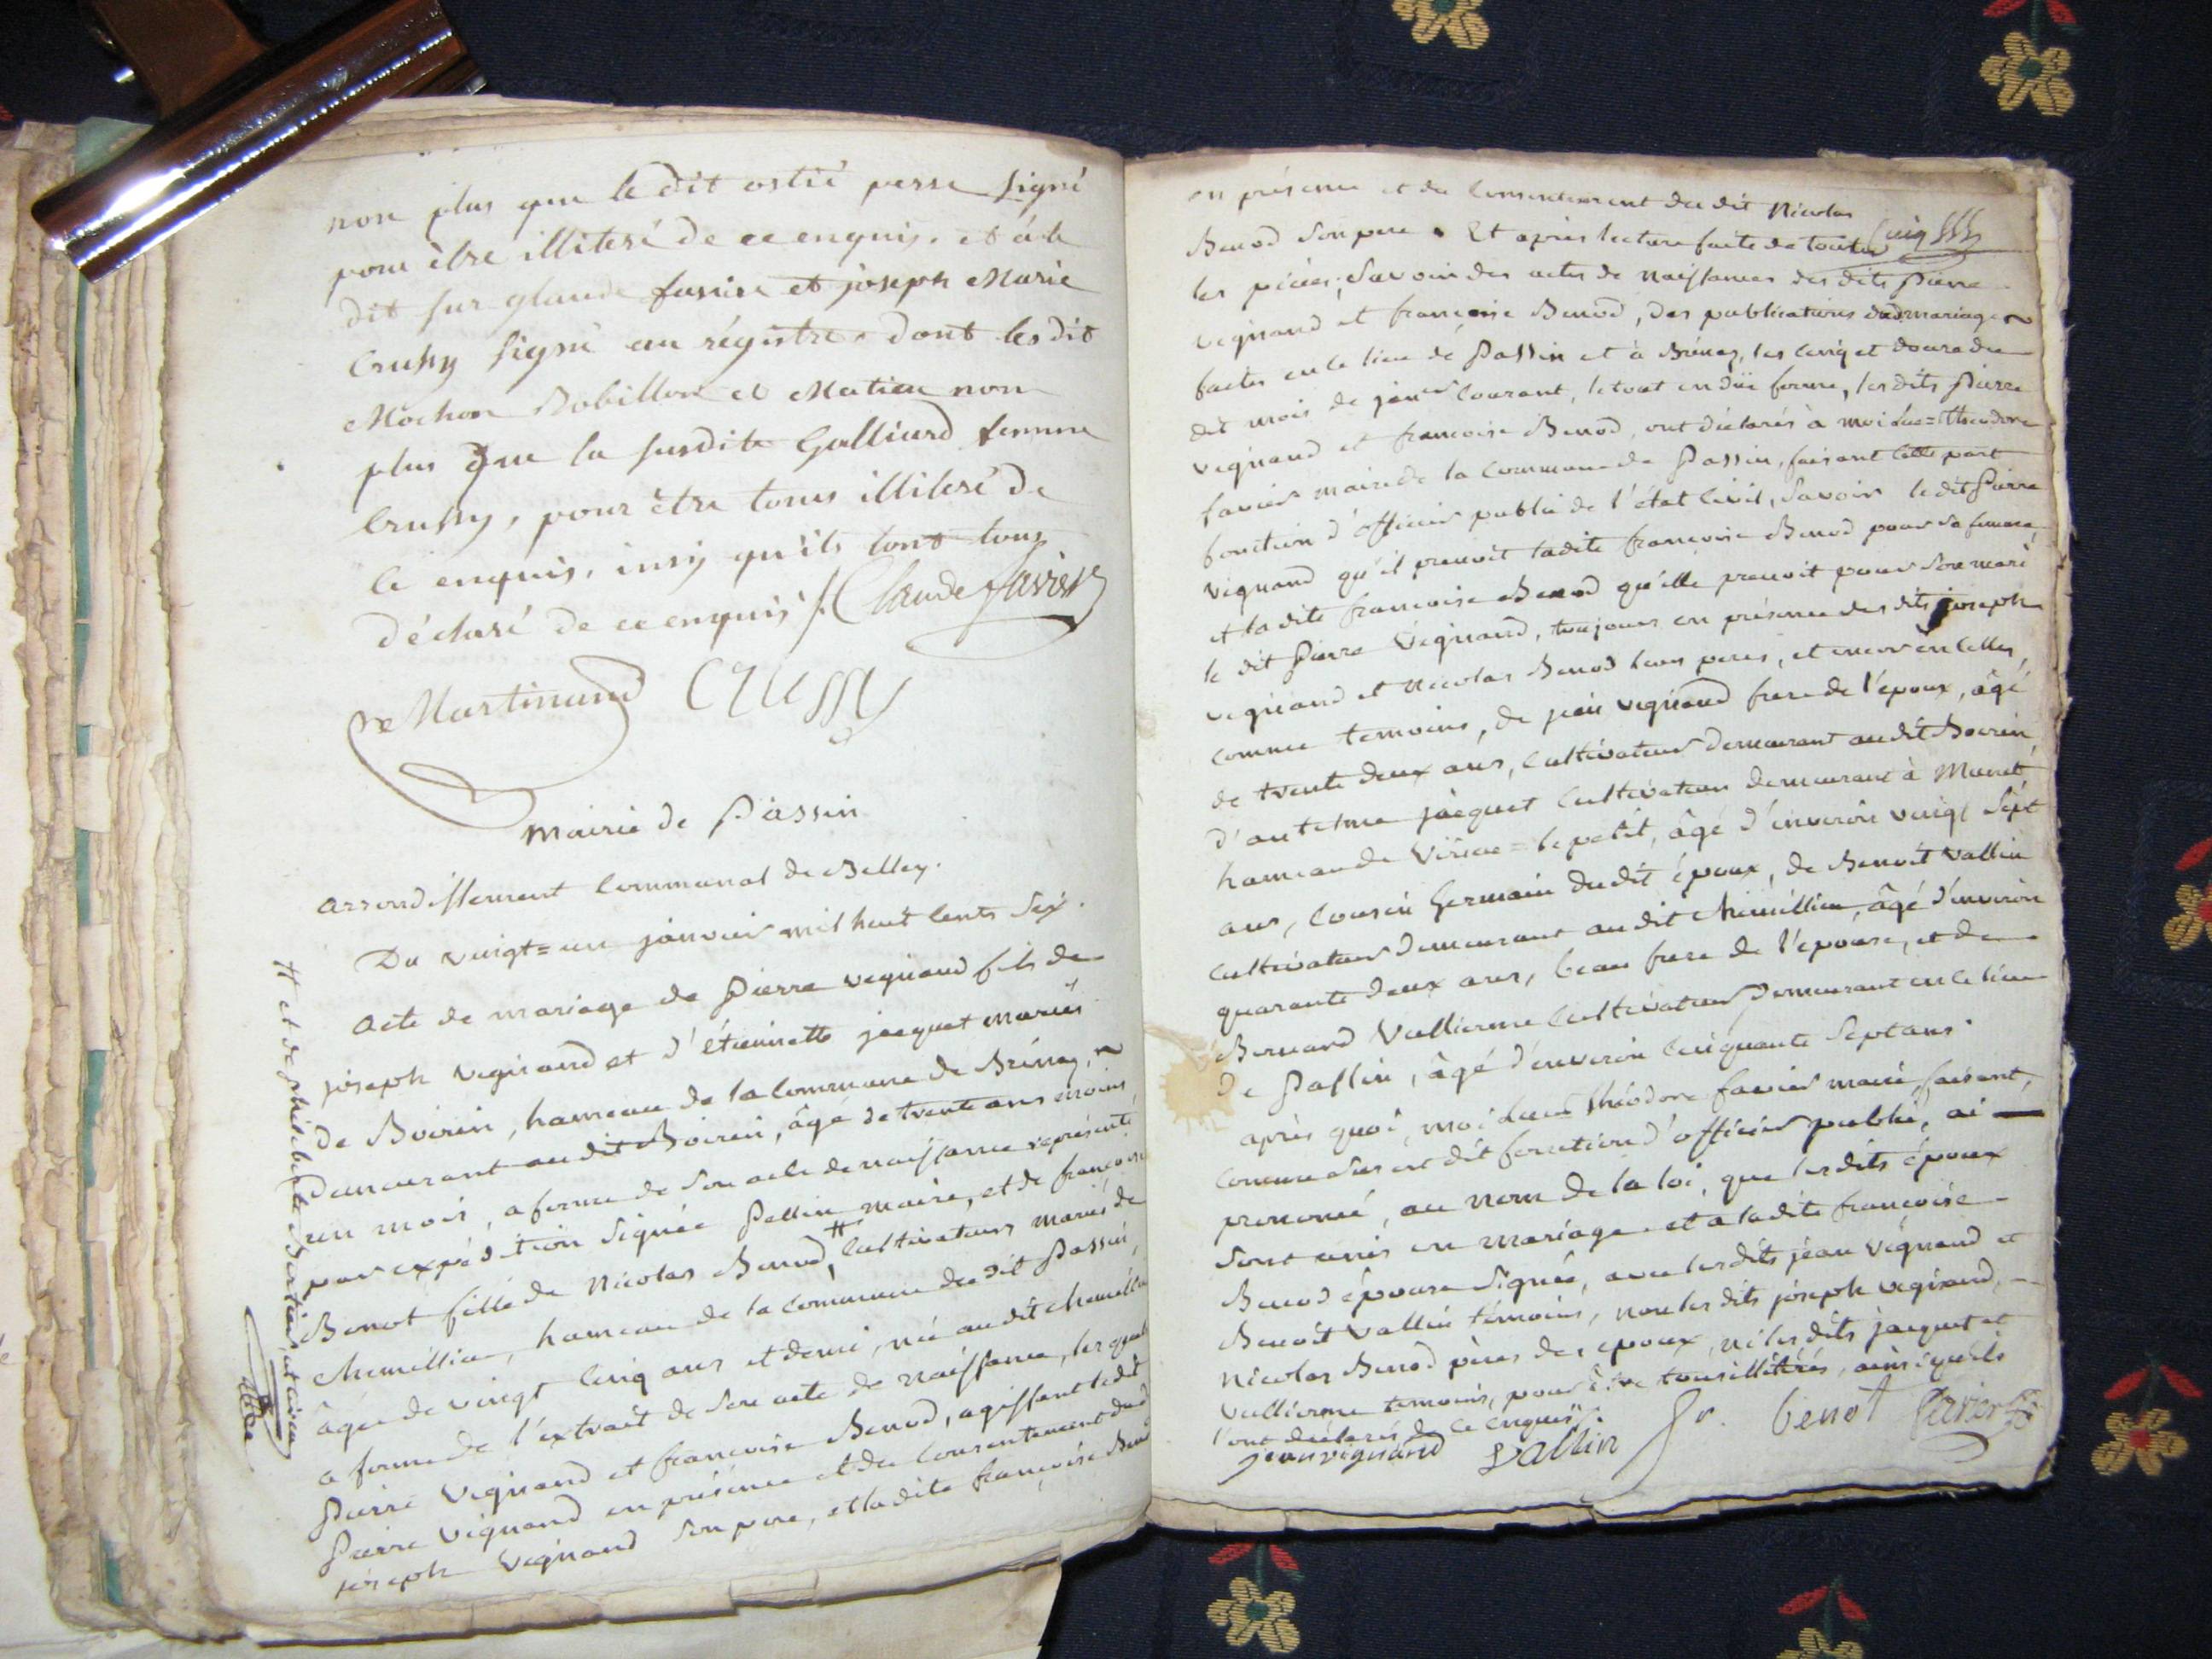 non plus que le dit ostié perre signé
pour être illiteré de ce enquis. et á le
dit sur glaude favier et joseph Marie
Crussy signé au régistre. dont les dit
Mochon Bobillon et Matieu non
plus que la susdite Galliard femme
Crussy, pour être tous illiteré de
ce enquis, insy qu'ils lont tous
déclaré de ce enquis /. Claude favier
Martinand Crussy
Mairie de Passin
arrondissement Communal de Belley.
Du vingt=un janvier mil huit cents six.
acte de mariage de Pierre vegnand fils de
joseph vegnand et d'étiennette jacquet mariés
de Boirin, hameau de la Commune de Brénaz,
demeurant au dit Boirin, âgé de trente ans moins
un mois, a forme de son acte de naissance représenté
par expédition signée Pellin maire, et de françoise
Benot fille de Nicolas Benod, # Cultivateurs mariés de
Chemillieu, hameau de la Commune du dit Passin,
âgée de vingt cinq ans et demi, née au dit chemillieu
a forme de l'extrait de son acte de naissance, les quels
Pierre Vegnand et francoise Benod, agissant le dit
Pierre vegnand en présence et du Consentement dudit
joseph Vegnand son pere, et la dite françoise Benod
# et de
en présence et du Consentement du dit Nicolas
Benod son pere. Et après lecture faite de toutes
les pièces; savoir des actes de naissances des dits Pierre
vegnand et françoise Benod, des publications de mariage
faites en ce lieu de Passin et à Brénaz, les cinq et douze du
dit mois de janvr Courant, le tout en düe forme, les dits Pierre
vegnand et francoise Benod, ont déclarés à moi Luc=Theodore
favier maire de la Commune de Passin, faisant cette part
fonction d'officier public de l'état Civil, savoir le dit Pierre
vegnand qu'il prenoit ladite francoise Benod pour sa femme,
et la dite francoise Benod qu'elle prenoit pour son mari
le dit Pierre Vegnand, toujours en présence des dits joseph
vegnand et Nicolas Benod leurs peres, et encor en celles,
comme temoins, de jean vegnand frere de l'epoux, âgé
de trente deux ans, Cultivateur demeurant au dit Boirin,
d'antelme jacquet Cultivateur demeurant à
hameau de Virieu=le petit, âgé d'environ vingt sept
ans, Cousin Germain dudit époux, de Benoit vallin
Cultivateur demeurant au dit Chemillieu, âgé d'environ
quarante deux ans, beau frere de l'epouse, et de
Bernard Vullierme Cultivateur demeurant en ce lieu
de Passin, âgé d'environ Cinquante sept ans.
après quoi, moi Luc Théodore favier maire, faisant,
comme sus est dit fonction d'officier public, ai
prononcé, au nom de la loi, que les dits époux
sont unis en mariage. et a ladite françoise
Benod épouse signée, avec les dits jean Vegnand et
Benoit vallin témoins, non les dits joseph vegnand,
Nicolas Benod pères des epoux, ni les dits jacquet et
vullierme temoins, pour être tous illitérés, ainsi qu'ils
l'ont déclarés de ce enquis /.
jean vignand vallin fr. benot favier